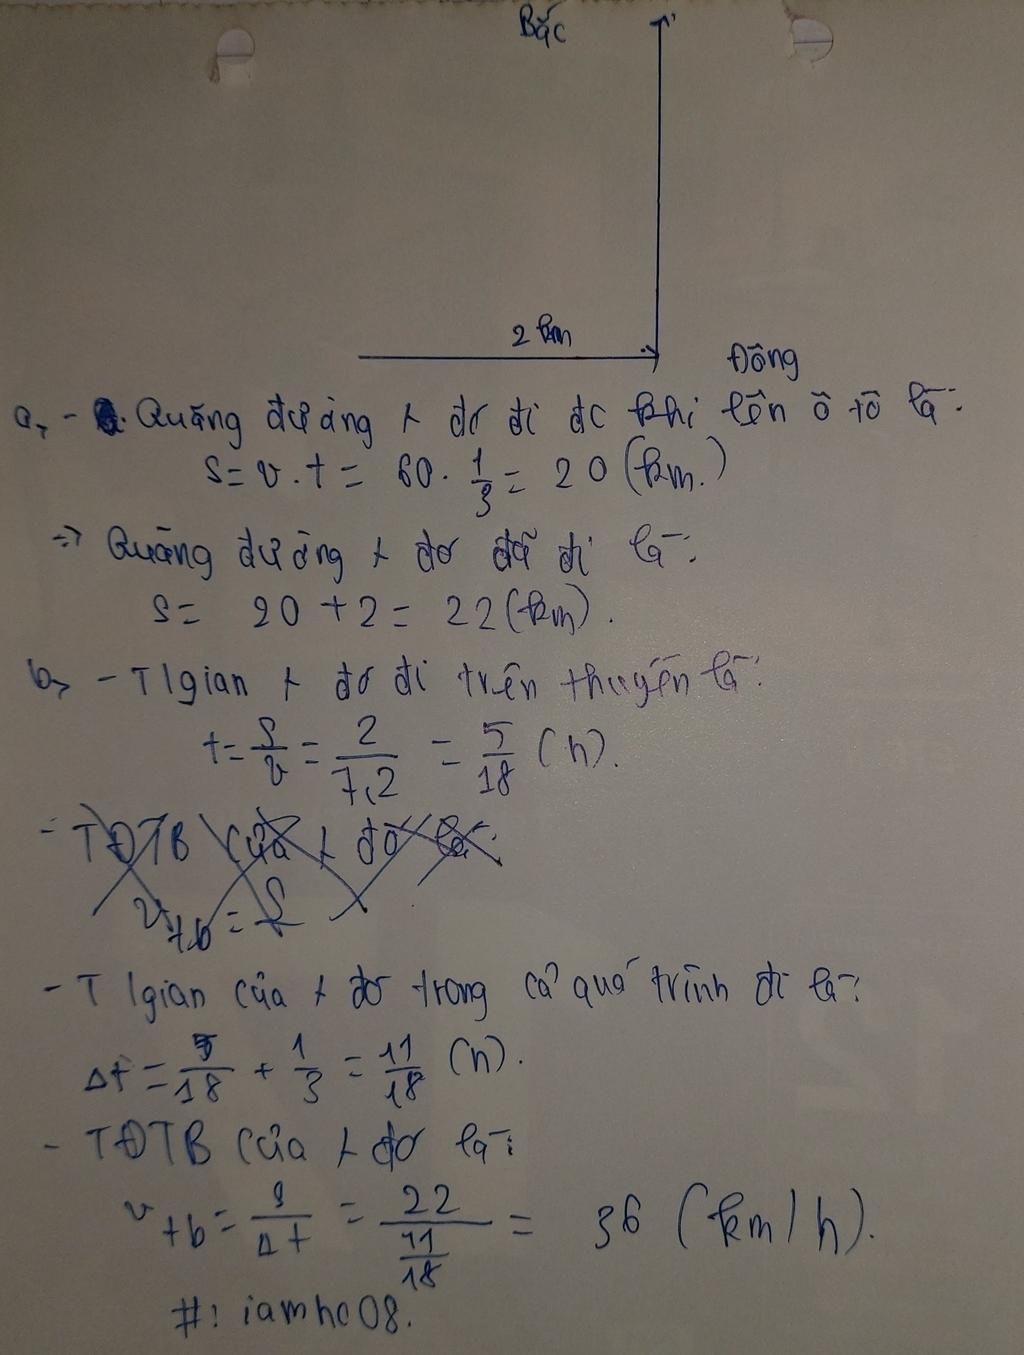 Bắc
2 km
Đông
a, - Quãng đường x đó đi đc khi lên ô tô là:
S = v.t = 60. 1/3 = 20 (km.)
=> Quãng đường x đó đã đi là:
S = 20 + 2 = 22 (km).
b, - T/gian x đó đi trên thuyền là:
t = S/v = 2/7,2 = 5/18 (h).
- TĐTB của x đó là:
v tb = S
- T/gian của x đó trong cả quá trình đi là:
Δt = 5/18 + 1/3 = 11/18 (h).
- TĐTB của x đó là:
v tb = S/Δt = 22/(11/18) = 36 (km/h).
#: iamhc08.